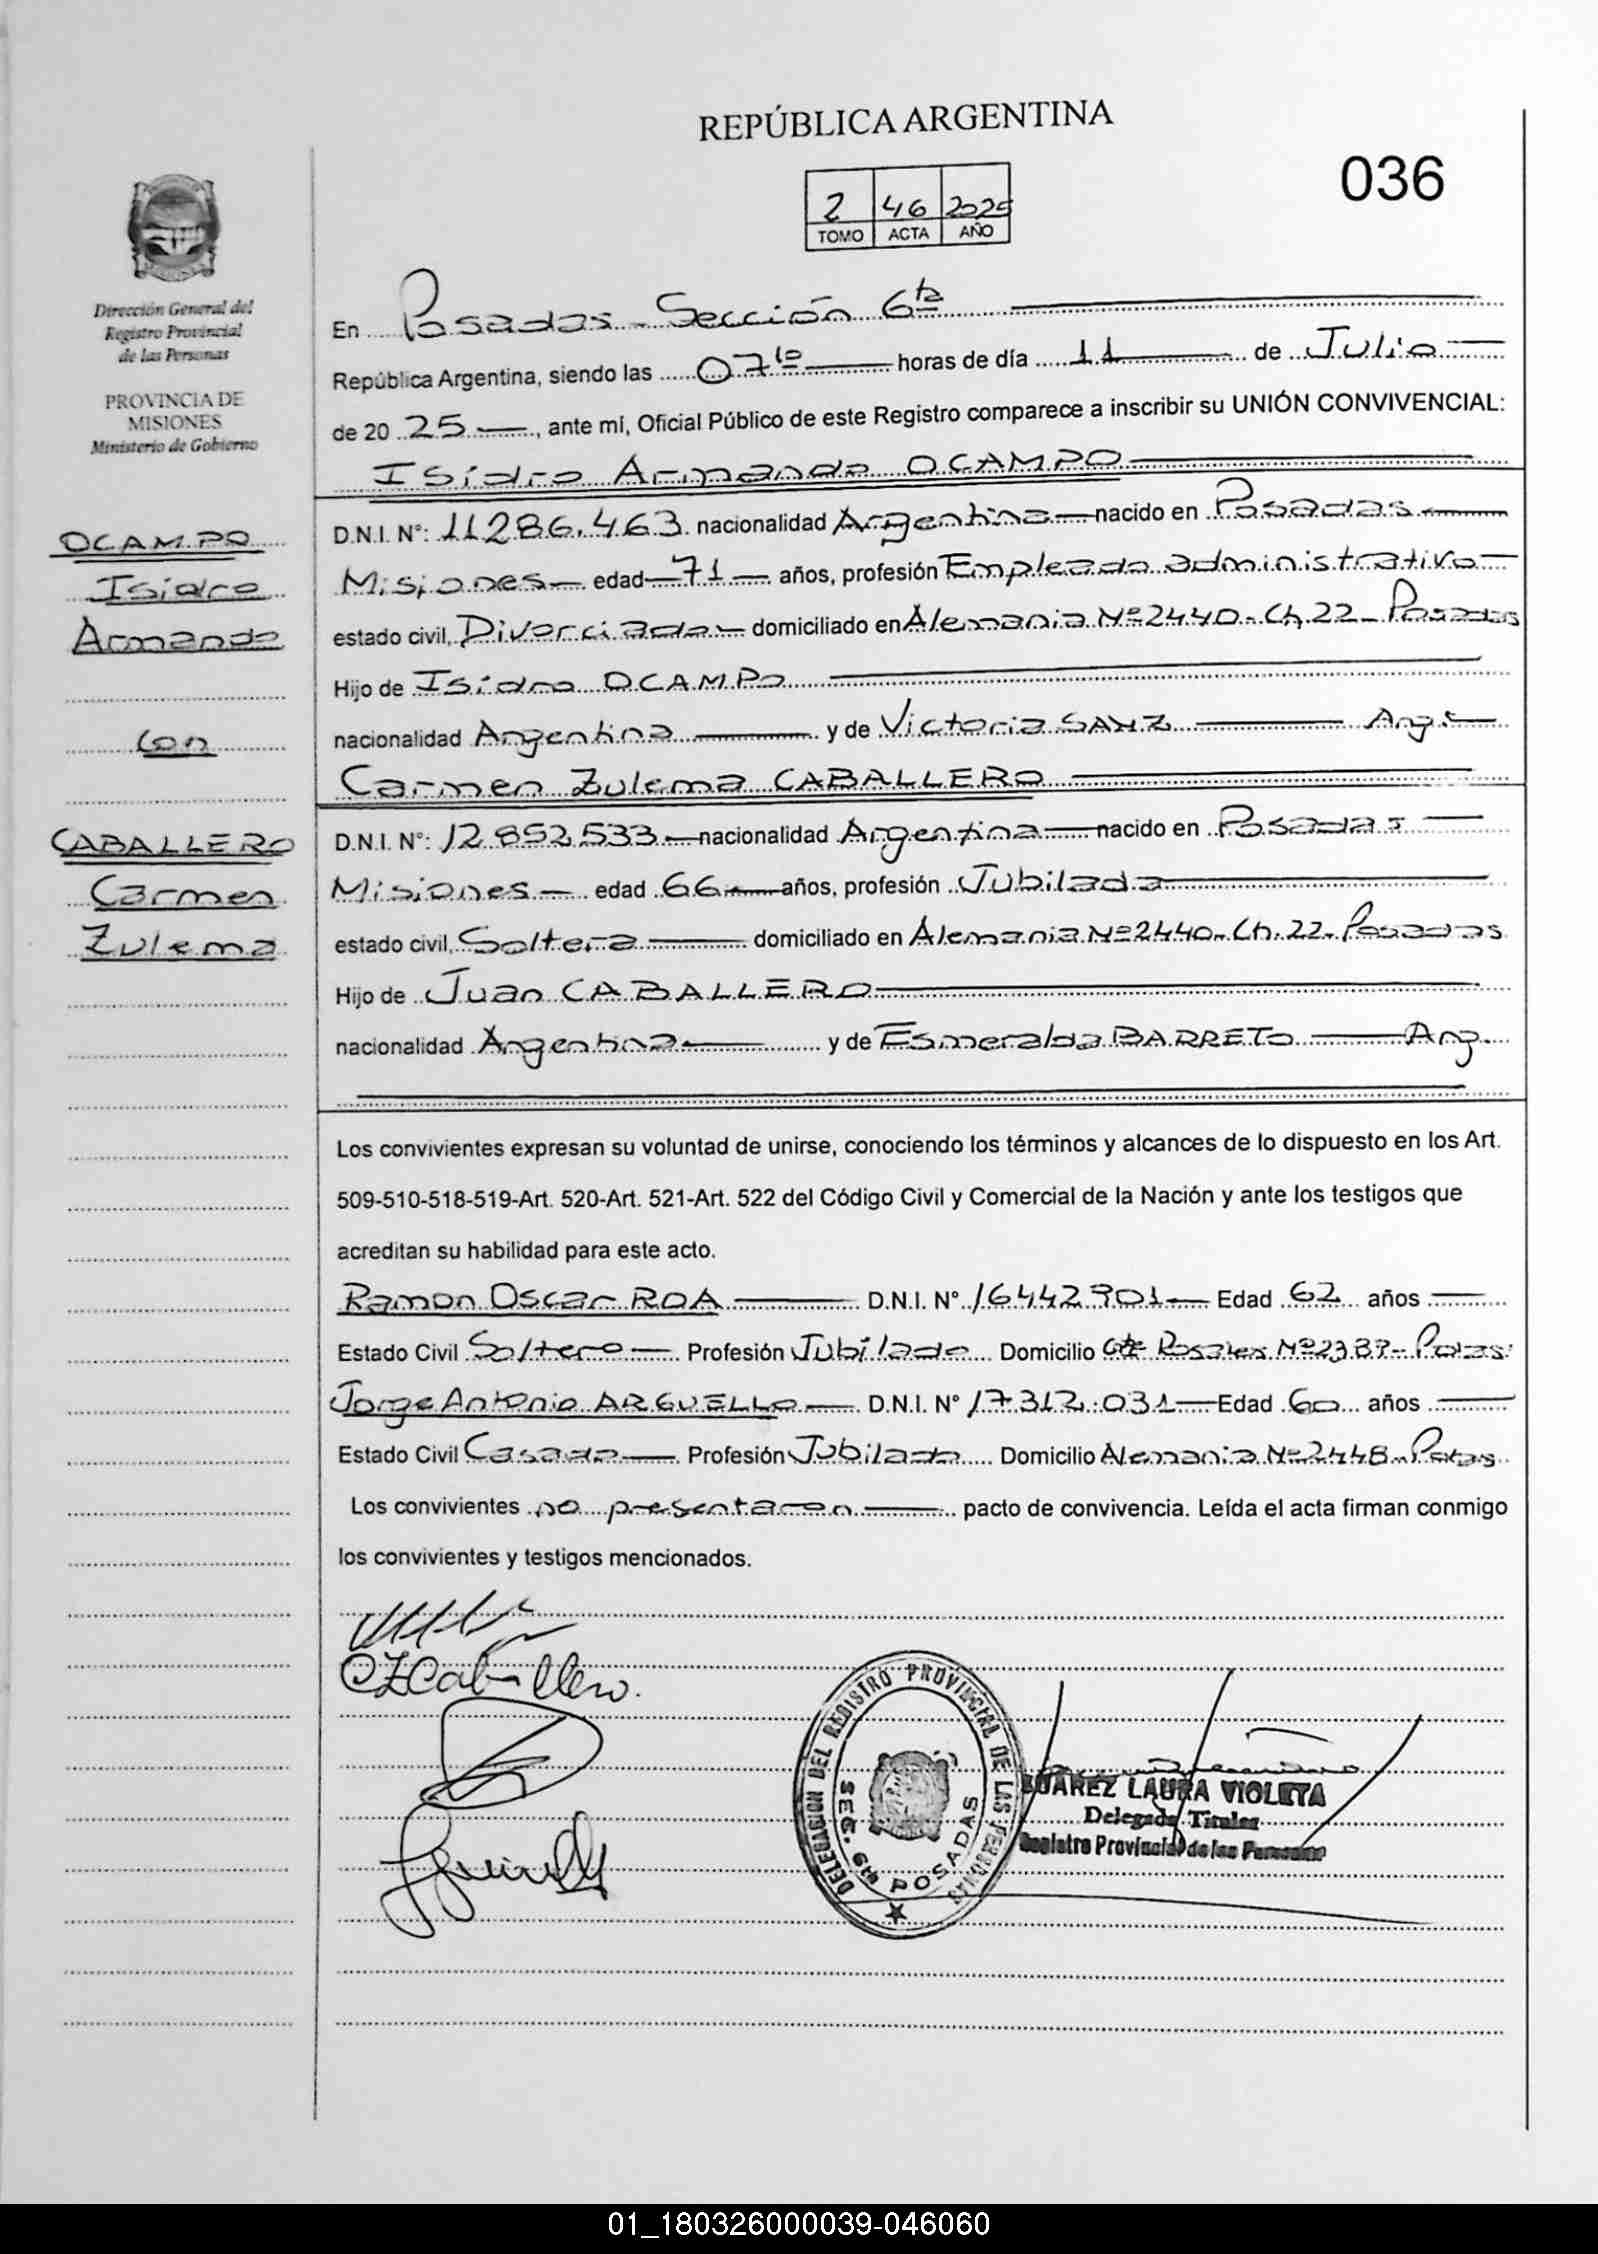 REPÚBLICA ARGENTINA
036
2 46 2025
TOMO ACTA AÑO
Dirección General del
Registro Provincial
de las Personas
PROVINCIA DE
MISIONES
Ministerio de Gobierno
OCAMPO
Isidro
Armando
Con
CABALLERO
Carmen
Zulema
En Posadas - Sección 6ta
República Argentina, siendo las 07 10 horas de día 11 de Julio
de 20 25, ante mí, Oficial Público de este Registro comparece a inscribir su UNIÓN CONVIVENCIAL:
Isidro Armando OCAMPO
D.N.I. Nº: 11.286.463 nacionalidad Argentina nacido en Posadas
Misiones edad 71 años, profesión Empleado administrativo
estado civil, Divorciado domiciliado en Alemania Nº 2440 - Ch. 22 - Posadas
Hijo de Isidro OCAMPO
nacionalidad Argentina y de Victoria SANZ Arg.
Carmen Zulema CABALLERO
D.N.I. Nº: 12.852.533 nacionalidad Argentina nacido en Posadas
Misiones edad 66 años, profesión Jubilada
estado civil, Soltera domiciliado en Alemania Nº 2440 - Ch. 22 - Posadas
Hijo de Juan CABALLERO
nacionalidad Argentina y de Esmeralda BARRETO Arg.
Los convivientes expresan su voluntad de unirse, conociendo los términos y alcances de lo dispuesto en los Art.
509-510-518-519-Art. 520-Art. 521-Art. 522 del Código Civil y Comercial de la Nación y ante los testigos que
acreditan su habilidad para este acto.
Ramon Oscar ROA D.N.I. Nº 16442901 Edad 62 años
Estado Civil Soltero Profesión Jubilado Domicilio Rosales Nº 2387 - Pdas.
Jorge Antonio ARGUELLO D.N.I. Nº 17.312.031 Edad 60 años
Estado Civil Casado Profesión Jubilado Domicilio Alemania Nº 2448 - Pdas.
Los convivientes no presentaron pacto de convivencia. Leída el acta firman conmigo
los convivientes y testigos mencionados.
CZCaballero.
DELEGACION DEL REGISTRO PROVINCIAL DE LAS PERSONAS
SEC. 6ta POSADAS
SUAREZ LAURA VIOLETA
Delegada Titular
Registro Provincial de las Personas
01_180326000039-046060